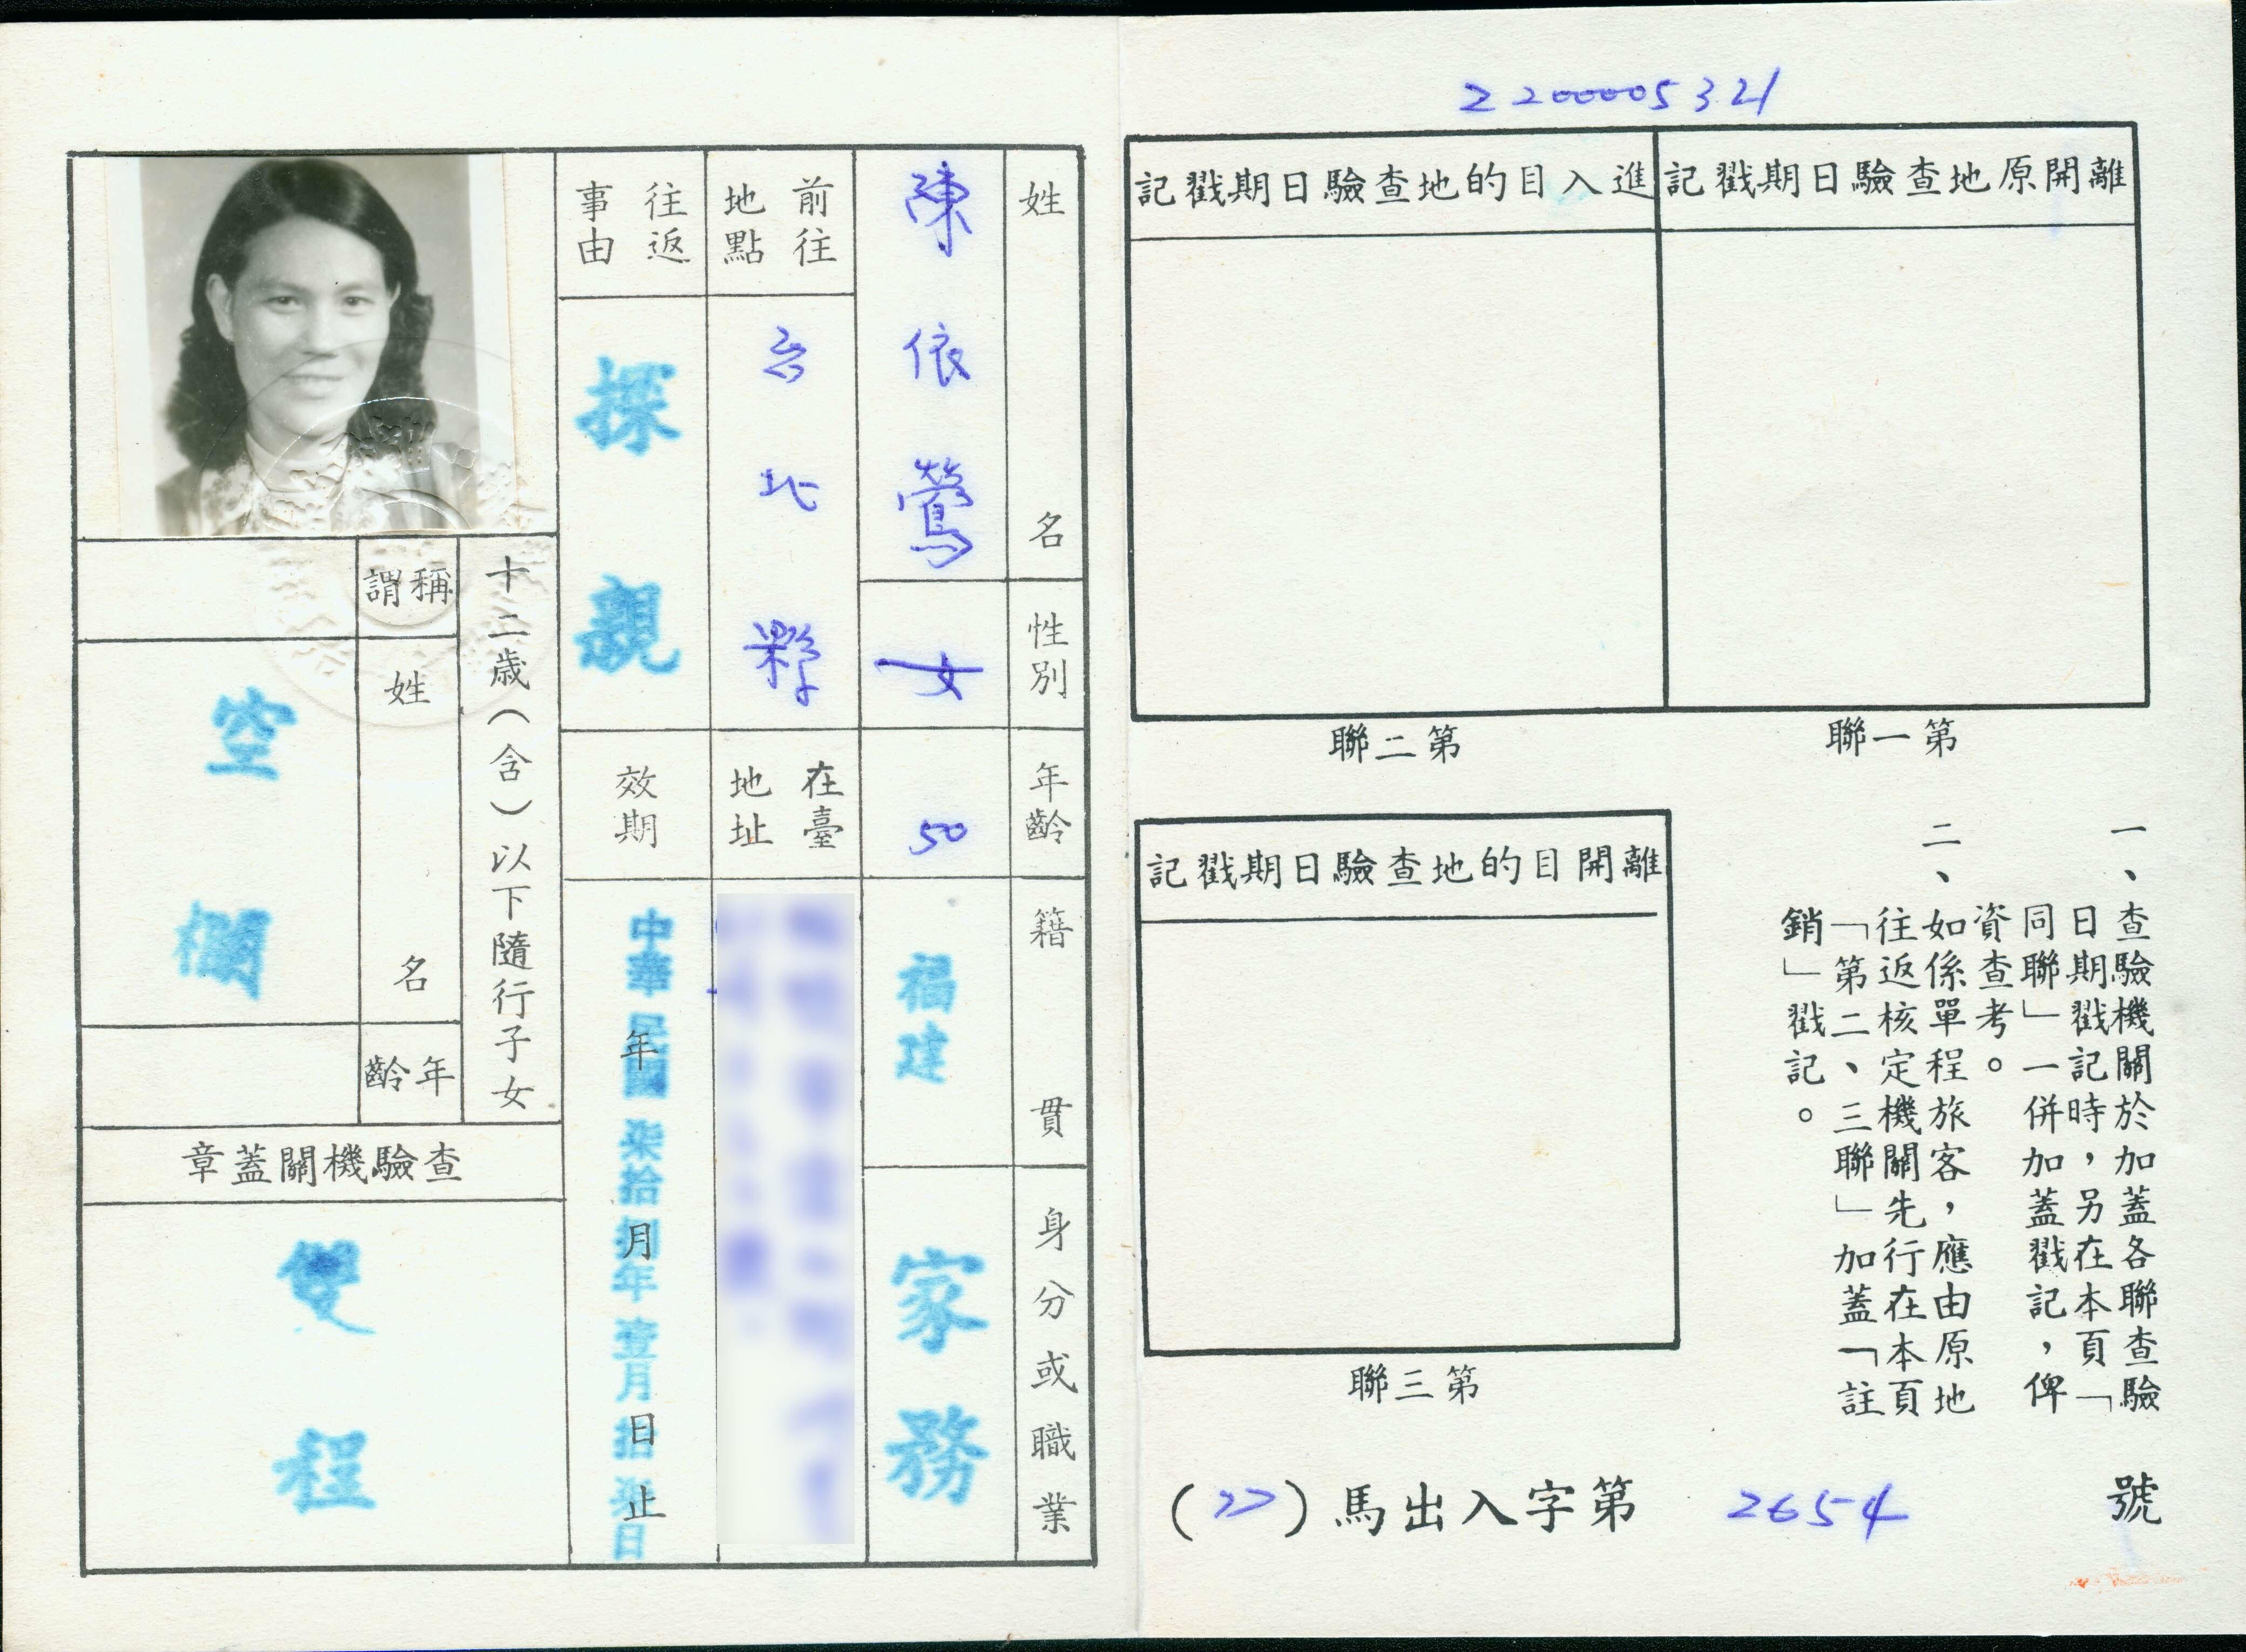 2200005321
離開原地查驗日期戳記
進入目的地查驗日期戳記
第一聯
第二聯
離開目的地查驗日期戳記
第三聯
一、查驗機關於加蓋各聯查驗
日期戳記時，另在本頁「
同聯」一併加蓋戳記，俾
資查考。
二、如係單程旅客，應由原地
往返核定機關先行在本頁
「第二、三聯」加蓋「註
銷」戳記。
(77)馬出入字第 2654 號
姓名
陳依鶯
性別
女
年齡
50
籍貫
福建
身分或職業
家務
前往
地點
台北
在臺
地址
往返
事由
探親
效期
年月日止
中華民國柒拾捌年壹月拾柒日
十二歲(含)以下隨行子女
稱謂
姓名
年齡
空欄
查驗機關蓋章
雙程